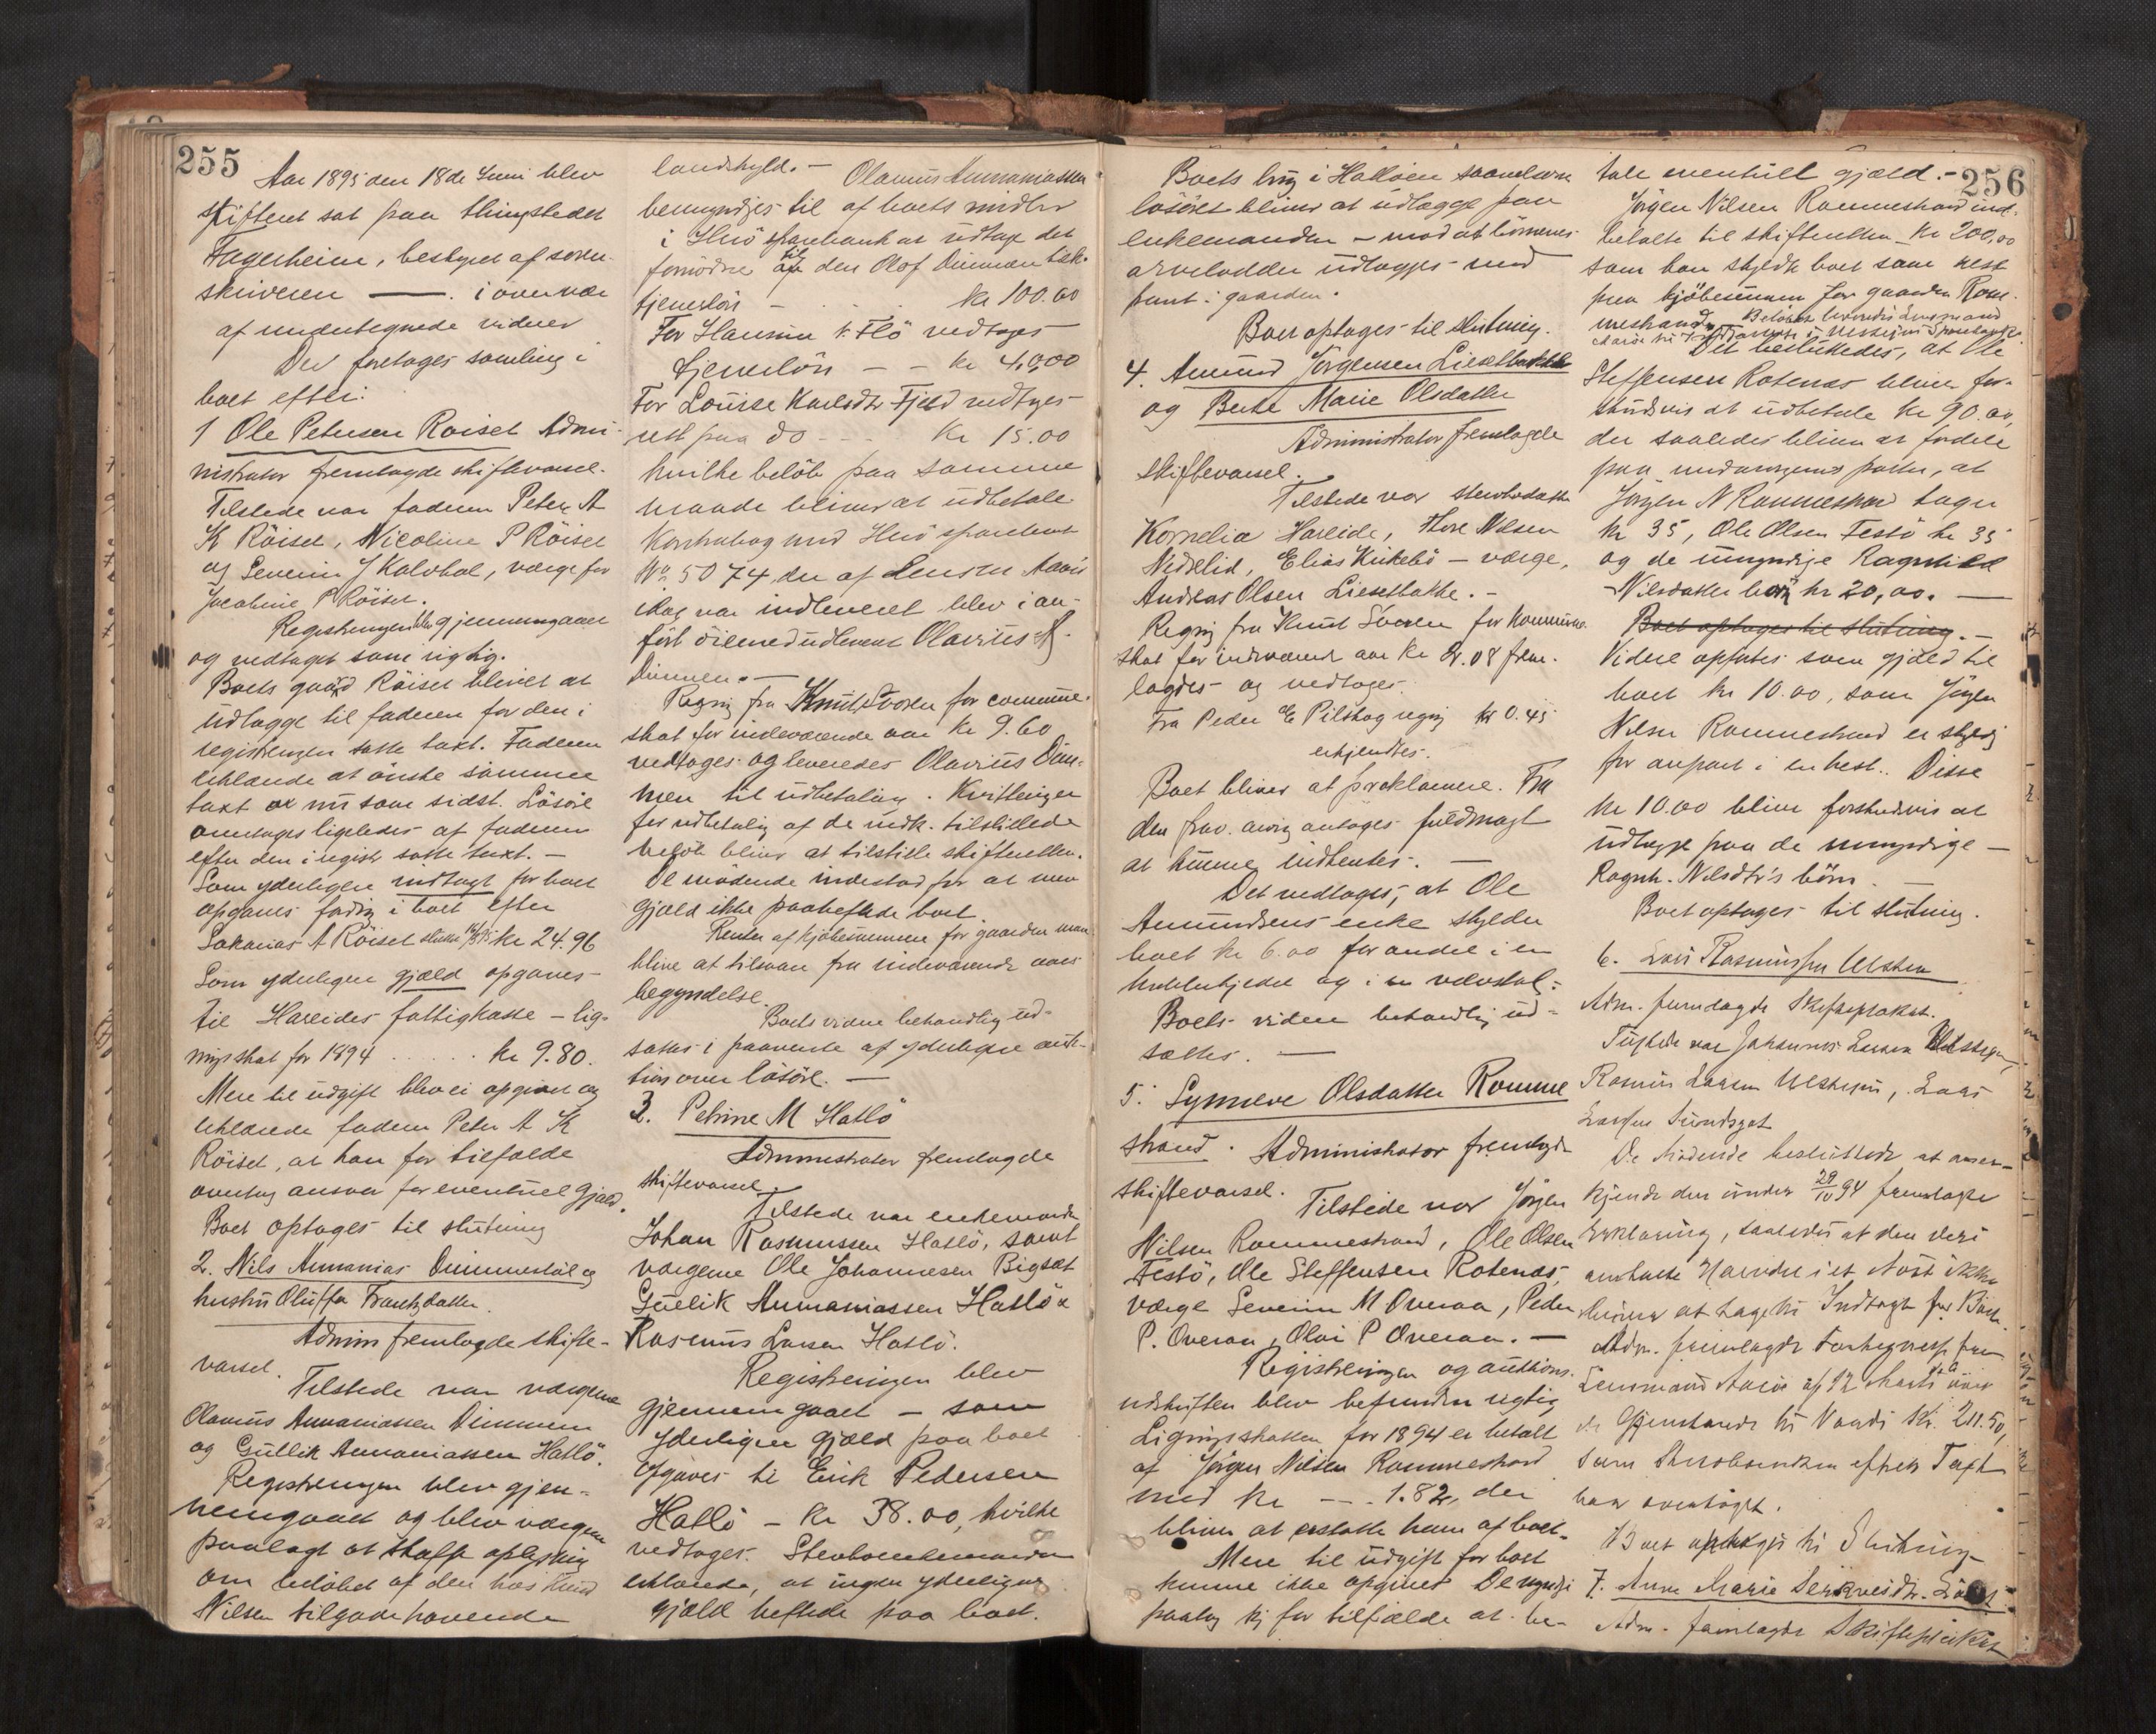 255
Aar 1895 den 18de Juni blev
skifteret sat paa thingstedet
Fagerheim, bestyret af soren-
skriveren —. i overvær
af undertegnede vidner
Der foretages samling i
boet efter:
1 Ole Petersen Röiset Admi-
nistrator fremlagde skiftevarsel.
Tilstede var faderen Peter A
K Röiset, Nicoline P Röiset
og Severin J Kaldhol, værge for
Jacobine P Röiset.
Registreringen blev gjennemgaaet
og vedtaget som rigtig.
Boets gaard Röiset blivet at
udlægge til faderen for den i
registreringen satte taxt. Faderen
erklærede at önske samme
taxt nu som sidst. Lösöre
overtages ligeledes af faderen
efter den i registr satte taxt. —
Som yderligere indtægt for boet
opgaves fordring i boet efter
Sakarias A Röiset kr 24.96
Som yderligere gjæld opgaves
til Hareides fattigkasse – lig-
ningsskat for 1894 . . . . . kr 9.80.
Mere til udgift blev ei opgivet og
erklærede faderen Peter A K
Röiset, at han for tilfælde
overtog ansvar for eventuel gjæld.
Boet optages til slutning
2. Nils Annanias Dimmestöl og
hustru Oluffa Frantzdatter.
Admin fremlagde skifte-
varsel.
Tilstede var værgerne
Olavius Annaniassen Dimmen
og Gullik Annaniassen Hatlö.
Registreringen blev gjen-
nemgaaet og blev værgerne
paalagt at skaffe oplysning
om belöbet af den hos Knud
Nilsen tilgodehavende
landskyld. —
Olavius Annaniassen
bemyndiges til af boets midler
i Herö sparebank at udtage det
fornödne til den Olaf Dimmen tilk.
tjenerlön – . . . . kr 100.00
For Hansine K. Flö vedtages
tjenerlön – – kr 40,00
For Louise Karlsdtr Fjeld vedtages
rest paa do – – . kr 15.00
hvilke belöb paa samme
maade bliver at udbetale.
Kontrabog med Herö sparebank
No 5074, der af Lensm Aarö
idag var indleveret blev i an-
fört öiemed udleveret Olavius A.
Dimmen. —
Regng fra Knut Svoren for commune-
skat for indeværende aar kr 9.60
vedtages og leveredes Olavius Dim-
men til udbetaling. Kvitteringer
for udbetalig af de vedk. tilstillede
belöb bliver at tilstille skifteretten.
De mödende indestod for at mere
gjæld ikke paaheftede boet.
Renter af kjöbesummen for gaarden maa
blive at tilsvare fra indeværende aars
begyndelse.
Boets videre behandling ud-
sættes i paavente af yderligere auk-
tion over lösöre. —
3. Petrine M Hatlö
Administrator fremlagde
skiftevarsel.
Tilstede var enkemanden
Johan Rasmussen Hatlö, samt
værgerne Ole Johannesen Bigset
Gullik Annaniassen Hatlö &
Rasmus Larsen Hatlö.
Registreringen blev
gjennemgaaet – som
yderligere gjæld paa boet
opgaves til Erik Pedersen
Hatlö – kr 38.00, hvilke
vedtages. Stervboenkemanden
erklærede, at ingen yderligere
gjæld heftede paa boet.
256
Boets brug i Hatlöen saavelsom
lösöret bliver at udlægge paa
enkemanden – mod at börnenes
arvelodder udlægges med
pant i gaarden.
Boet optages til slutning.
4. Amund Jörgensen Liesetbakke
og Berte Marie Olsdatter
Administrator fremlagde
skiftevarsel.
Tilstede var stervbodatter
Kornelia Hareide, Thore Nilsen
Nedrelid, Elias Kirkebö – værge,
Andreas Olsen Liesetbakke. –
Regng fra Knut Svoren for kommune-
skat for indeværend aar kr 2.08 frem-
lagdes og vedtages.
Fra Peder E Pilskog regng kr 0.45
erkjendtes.
Boet bliver at proklamere. Fra
den frav. arving antages fuldmagt
at kunne indhentes. —
Det vedtages, at Ole
Amundsens enke skylder
boet kr 6.00 for andel i en
kobberkjedel og i en vævstol.
Boets videre behandling ud-
sættes. —
5. Synneve Olsdatter Romme
strand. Administrator fremlagde
skiftevarsel.
Tilstede var Jörgen
Nilsen Rommestrand, Ole Olsen
Festö, Ole Steffensen Rotenæs,
værge Severin M Overaa, Peder
P. Overaa, Olai P Overaa. —
Registreringen og auktions-
udskriften blev befunden rigtig
Ligningsskatten for 1894 er betalt
af Jörgen Nilsen Rommestrand
med kr – – . 1.82, der
bliver at erstatte ham af boet.
Mere til udgift for boet
kunne ikke opgives De myndige
paatog sig for tilfælde at be-
tale eventuelt gjæld. –
Jörgen Nilsen Rommestrand ind-
betalte til skifteretten kr 200,00
som han skyldte boet som rest
paa kjöbesummen for gaarden Rom-
mestrand. Belöbet leveredes Lensmand
Aarö til Indsættelse i Sparebank
Det besluttedes, at Ole
Steffensen Rotenæs bliver for-
skudsvis at udbetale kr 90.00,
der saaledes bliver at fordele
paa medarvingernes parter, at
Jörgen N Rommestrand tager
kr 35, Ole Olsen Festö kr 35
og de umyndige Ragnhild
Nilsdatters börn kr 20,00. —
Boet optages til slutning. –
Videre opförtes som gjæld til
boet kr 10.00, som Jörgen
Nilsen Rommestrand er skyldig
for anpart i en hest. Disse
kr 10.00 bliver forskudsvis at
udlægge paa de umyndige –
Ragnh. Nilsdtr's börn. —
Boet optages til slutning.
6. Lars Rasmussen Ulstein
Adm. fremlagde Skifteplakat.
Tilstede var Johannes Larsen Ulstein,
Rasmus Larsen Ulstein, Lars
Larsen Sundgot
De mödende besluttede at aner-
kjende den under 29/10 94 fremlagte
Erklæring, saaledes at den deri
omhandlede Halvdel i et Nöst ikke
bliver at tage til Indtægt for Boet.
Adm. fremlagde Fortegnelse fra
Lensmand Aarö af 12 Marts over
de Gjenstande til Værdi Kr. 211.50,
som Stervboenken efter Taxt
har overtaget.
Boet optages til Slutning
7. Anne Marie
Adm. fremlagde Skifteplakat